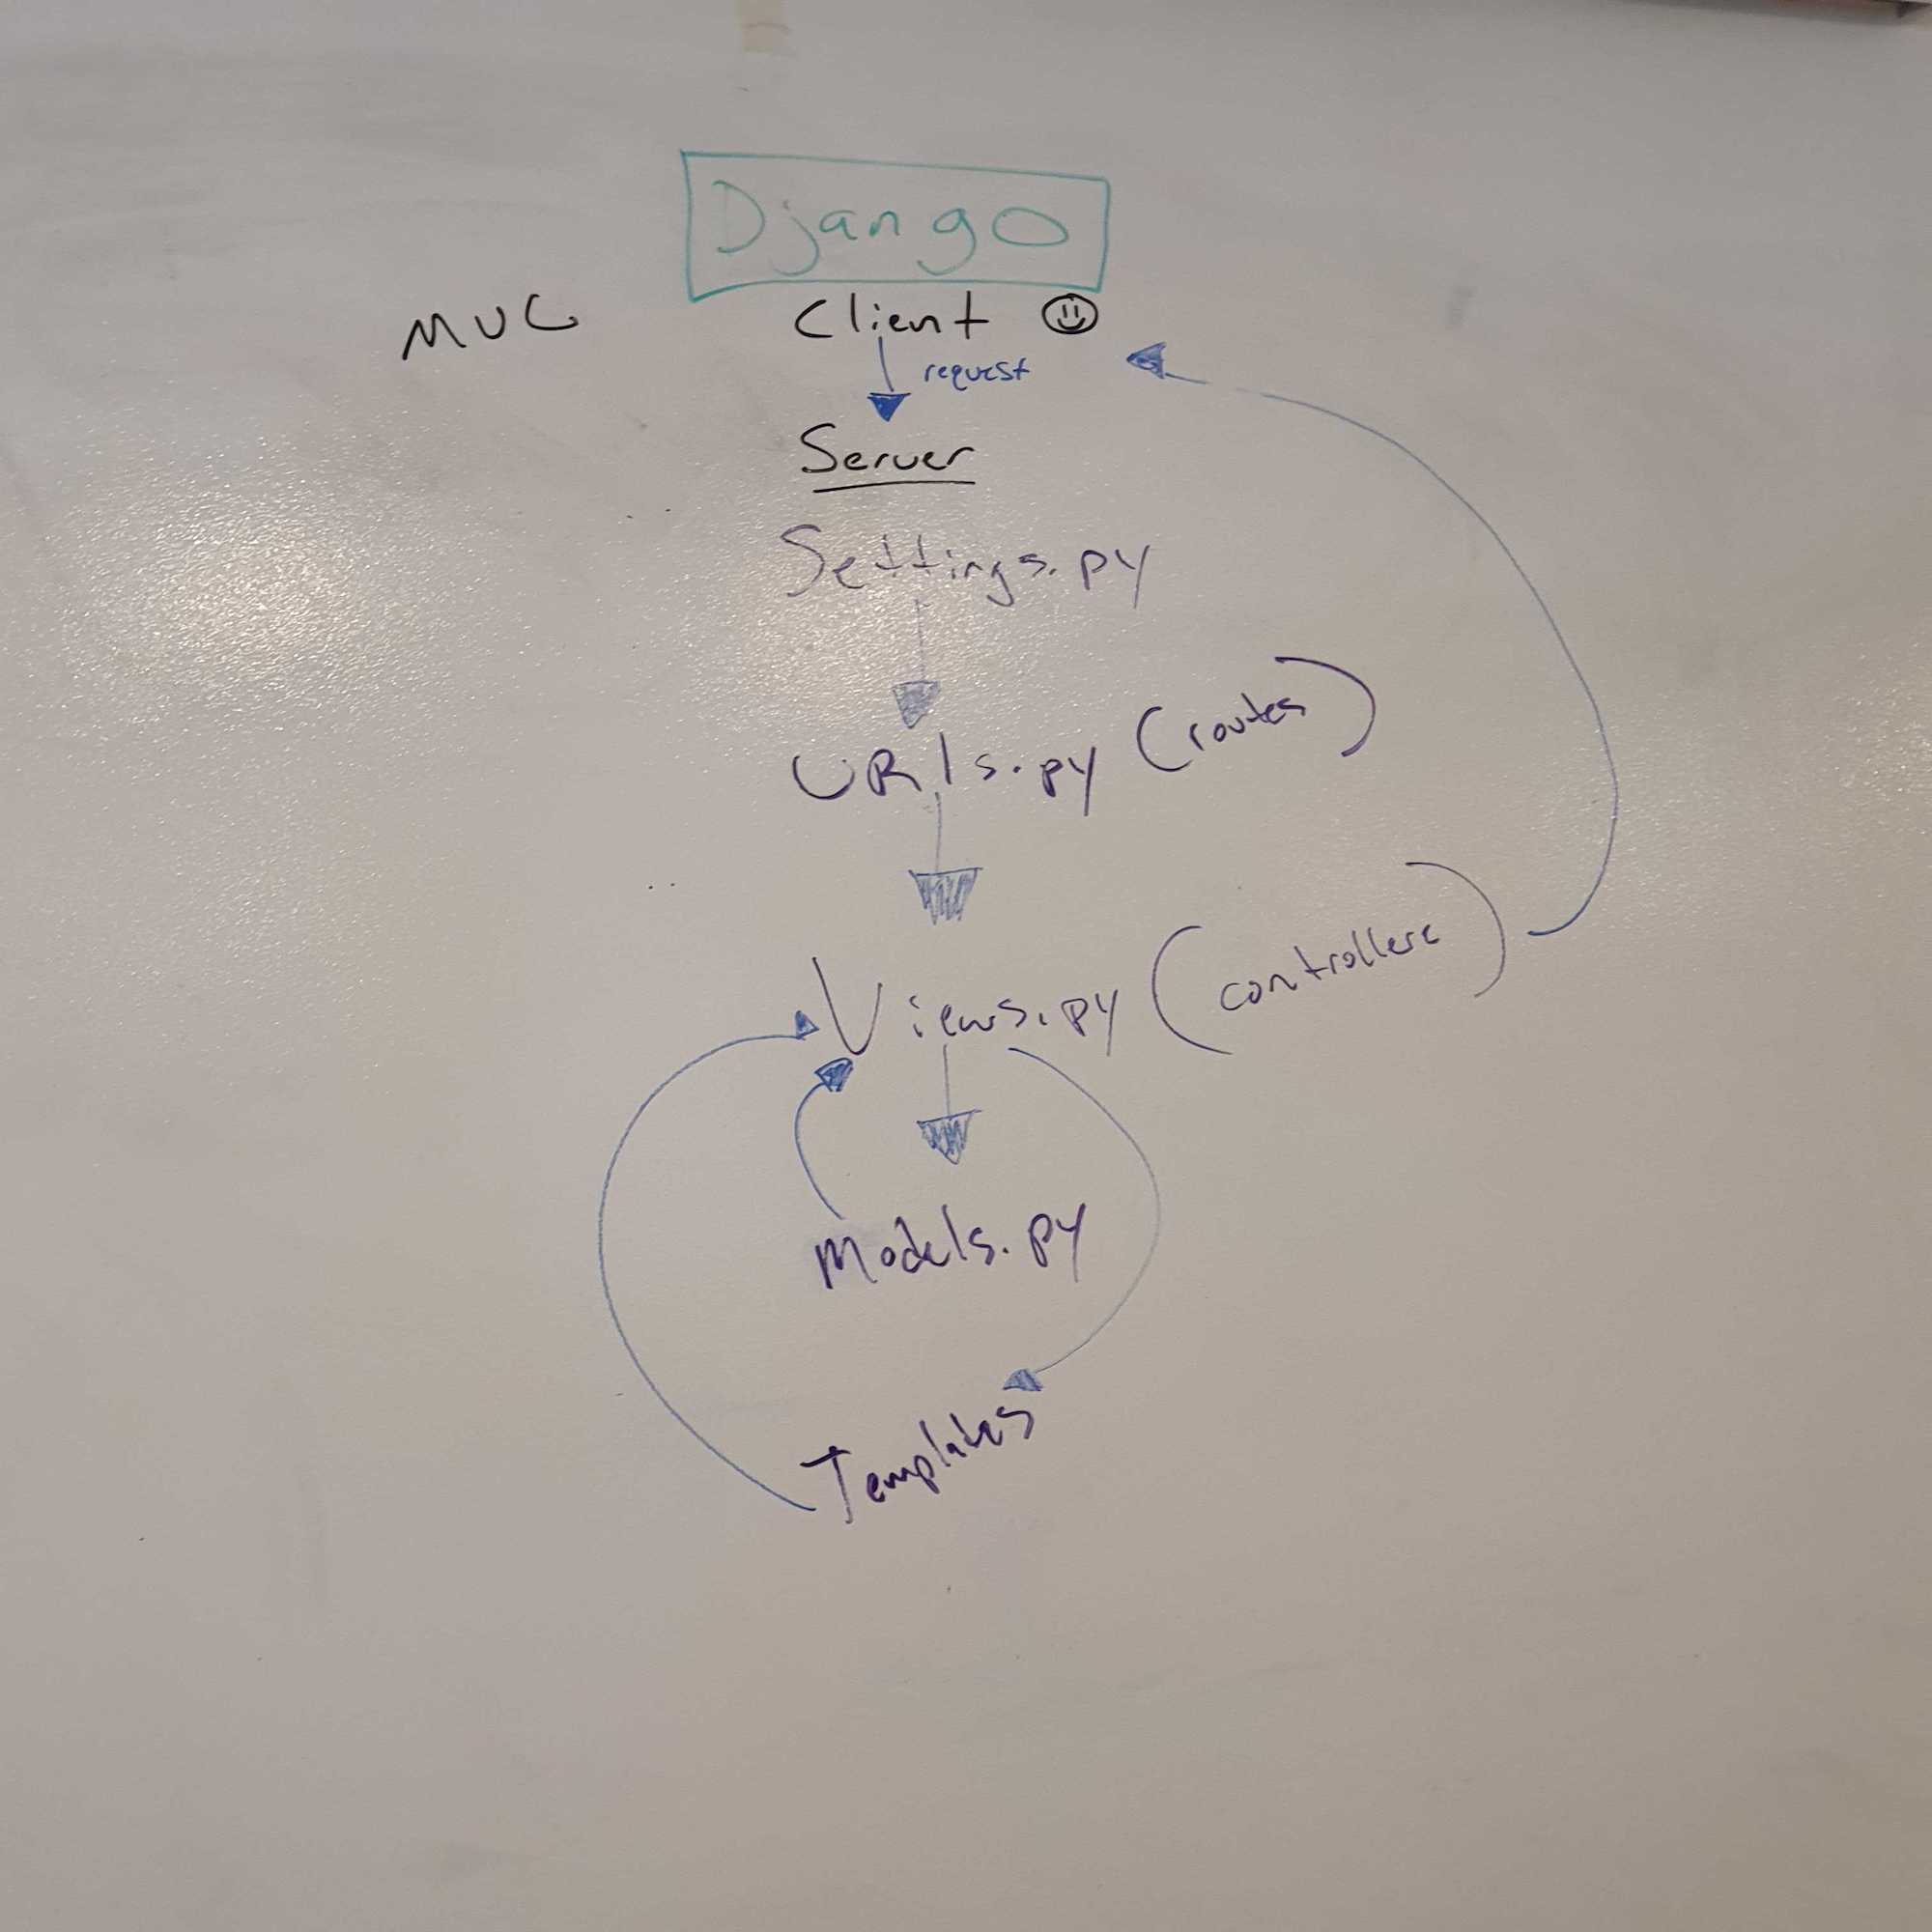 Django
MVC Client
request
Server
Settings.py
URls.py (routes)
Views.py (controllers)
Models.py
Templates